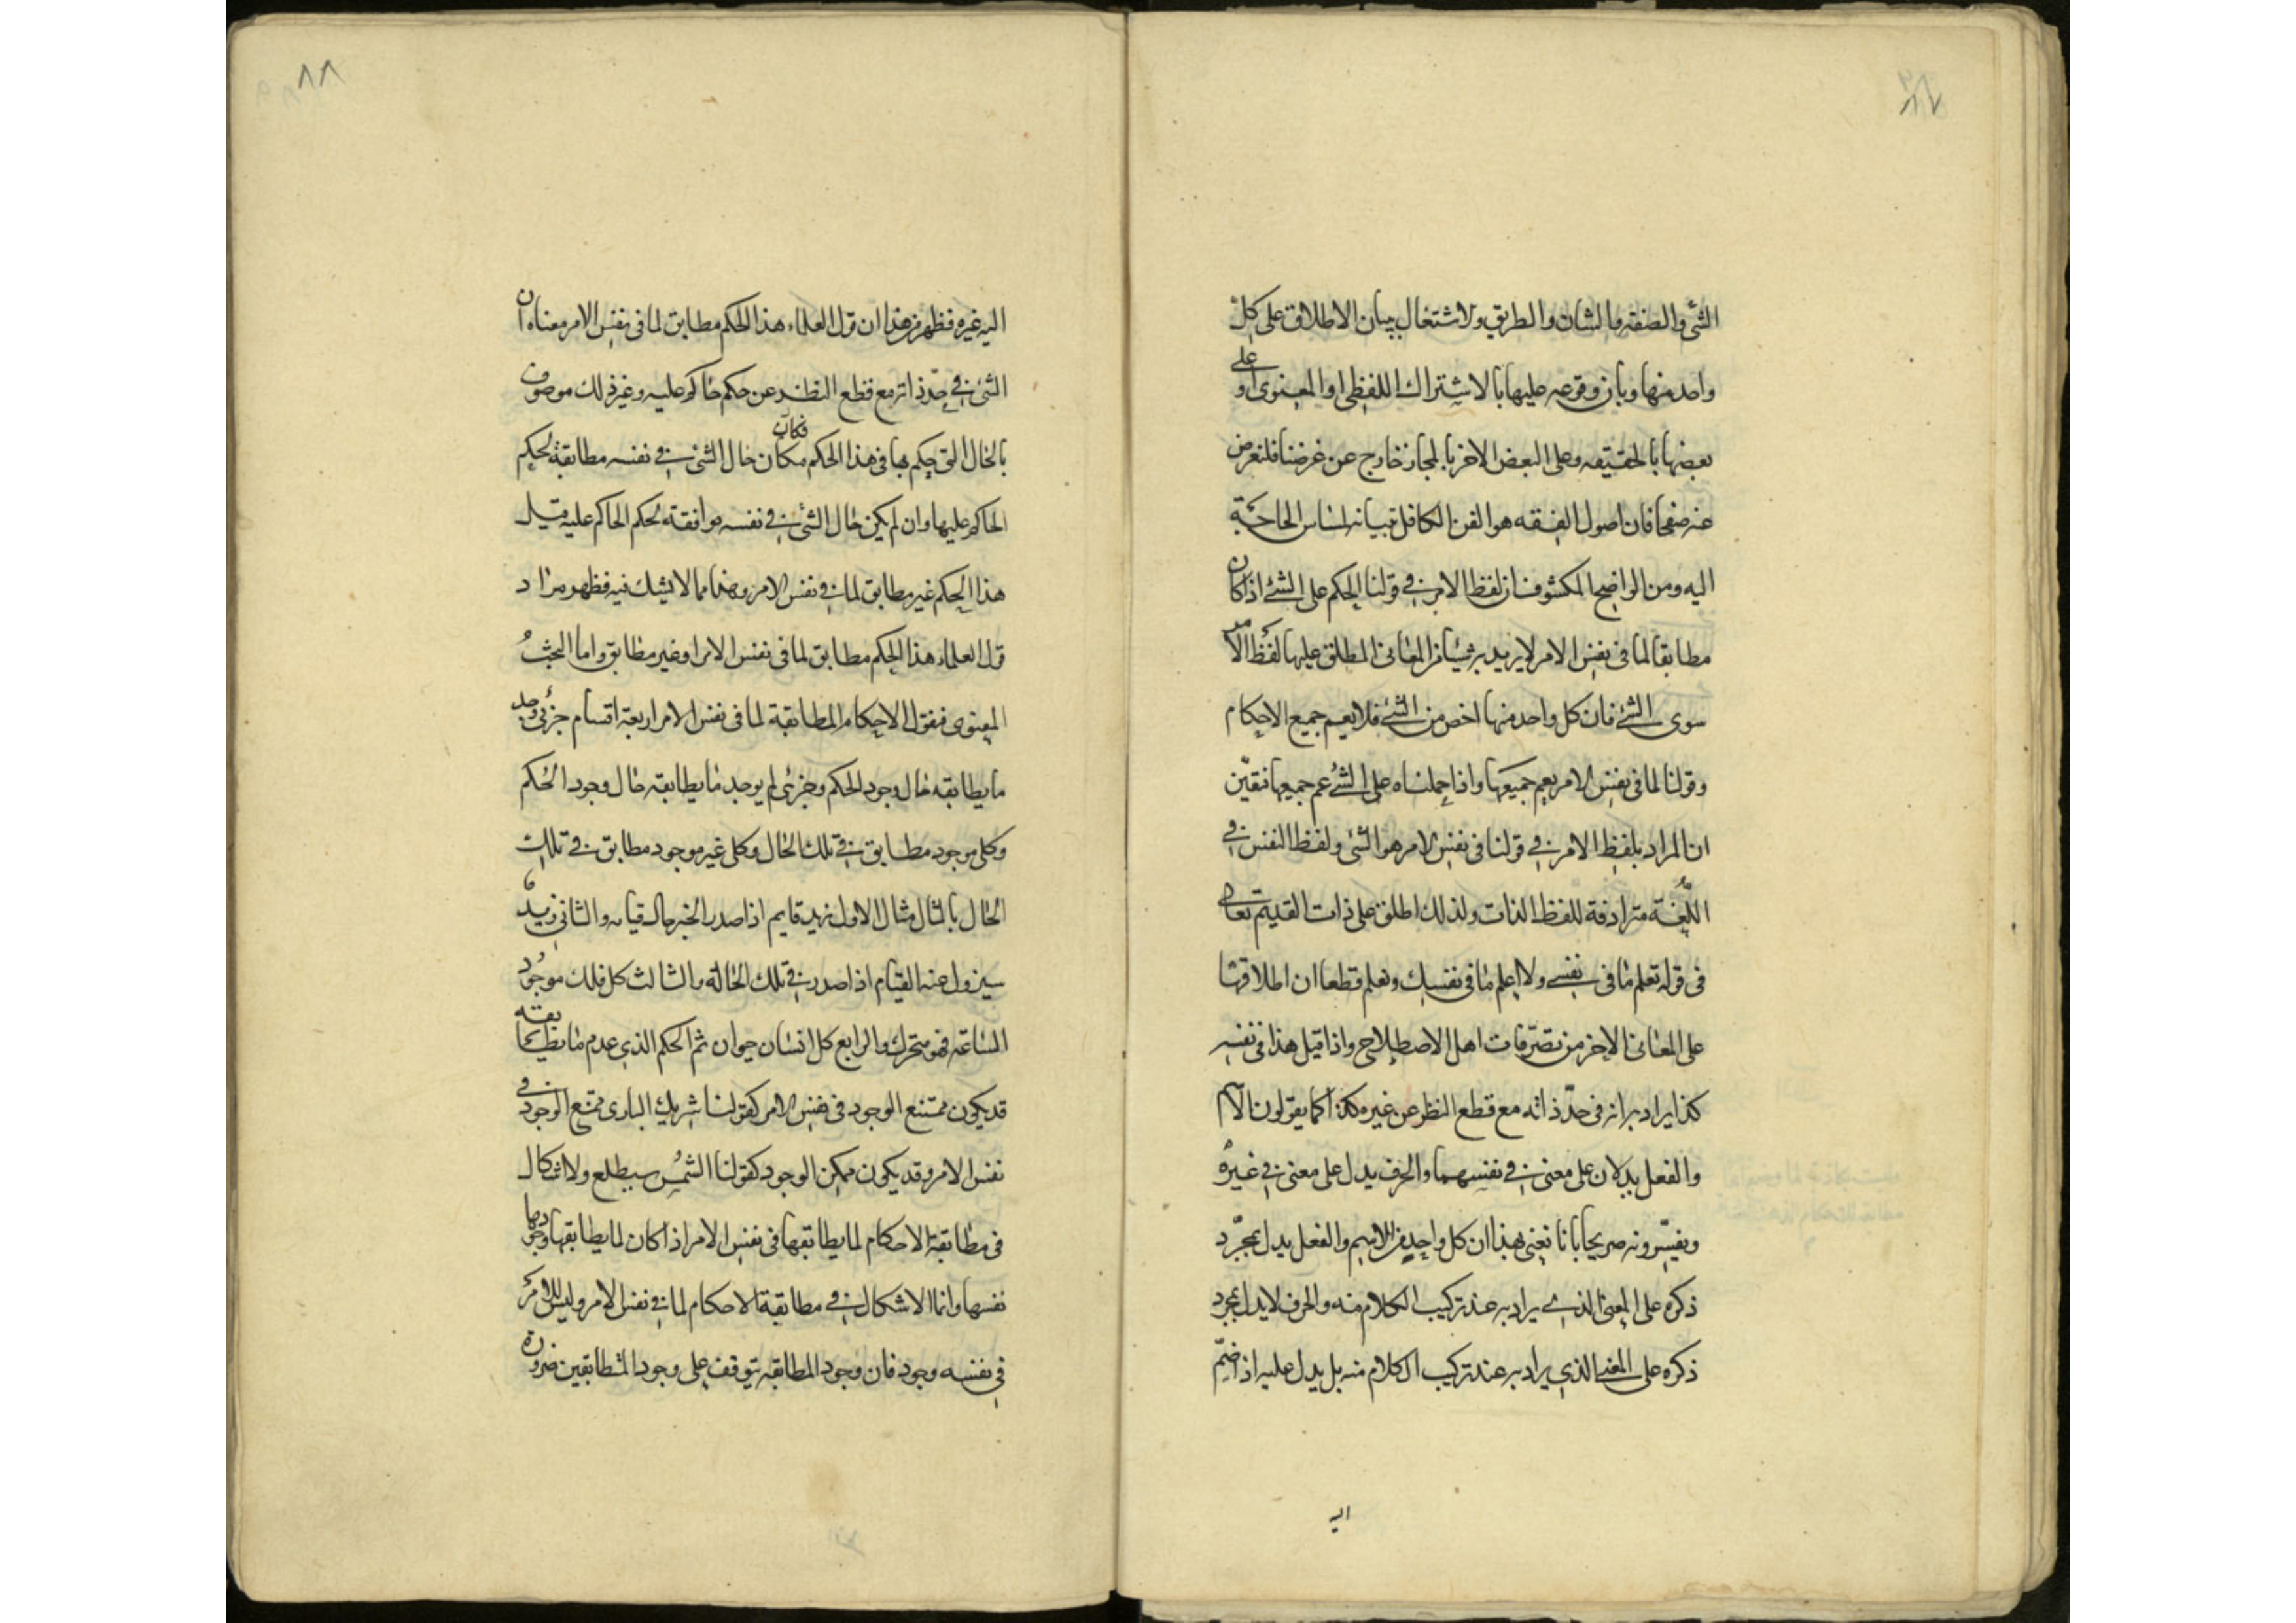 ٨٧
الشئ والصفة والشان والطريق ولاشتغال ببيان الاطلاق على كل
واحد منها وبان وقوعه عليها بالاشتراك اللفظى او المعنوى او على
بعضها بالحقيقه وعلى البعض الاخر بالمجاز خارج عن غرضنا فلنعرض
عنه صفحا فان اصول الفقه هو الفن الكافل تبيانه لمساس الحاجة
اليه ومن الواضح المكشوف ان لفظ الامر فى قولنا الحكم على الشئ اذا كان
مطابقا لما فى نفس الامر لا يريد به شيئا من المعانى المطلق عليها لفظ الامر
سوى الشئ فان كل واحد منها اخص من الشئ فلا يعم جميع الاحكام
وقولنا لما فى نفس الامر يعم جميعها واذا حملناه على الشئ عم جميعها فتعين
ان المراد بلفظ الامر فى قولنا فى نفس الامر هو الشئ ولفظ النفس فى
اللغة مترادفة للفظ الذات ولذلك اطلق على ذات القديم تعالى
فى قوله تعلم ما فى نفسى ولا اعلم ما فى نفسك ونعلم قطعا ان اطلاقها
على المعانى الاخر من تصرفات اهل الاصطلاح واذا قيل هذا فى نفسه
كذا يراد به انه فى حد ذاته مع قطع النظر عن غيره كذا كما يقولون الاسم
والفعل يدلان على معنى فى نفسهما والحرف يدل على معنى فى غيره
ويفسرونه صريحا بانا نعنى بهذا ان كل واحد من الاسم والفعل يدل بمجرد
ذكره على المعنى الذى يراد به عند تركيب الكلام منه والحرف لا يدل بمجرد
ذكره على المعنى الذى يراد به عند تركيب الكلام منه بل يدل عليه اذا ضم
اليه
٨٨
اليه غيره فظهر من هذا ان قول العلماء هذا الحكم مطابق لما فى نفس الامر معناه ان
الشئ فى حد ذاته مع قطع النظر عن حكم حاكم عليه وغير ذلك موصوف
بالحال التى حكم بها فى هذا الحكم فكان حال الشئ فى نفسه مطابقة لحكم
الحاكم عليها وان لم يكن حال الشئ فى نفسه موافقة لحكم الحاكم عليه قيل
هذا الحكم غير مطابق لما فى نفس الامر وهذا مما لا يشك فيه فظهر مراد
قول العلماء هذا الحكم مطابق لما فى نفس الامر او غير مطابق واما البحث
المعنوى فنقول الاحكام المطابقة لما فى نفس الامر اربعة اقسام جزئى وجد
ما يطابقه حال وجود الحكم وجزئى لم يوجد ما يطابقه حال وجود الحكم
وكلى موجود مطابق فى تلك الحال وكلى غير موجود مطابق فى تلك
الحال بالمثال مثال الاول زيد قايم اذا صدر الخبر حال قيامه والثانى زيد
سيزول عنه القيام اذا صدر فى تلك الحالة والثالث كل فلك موجود
الساعة فهو متحرك والرابع كل انسان حيوان ثم الحكم الذى عدم ما يطابقه
قد يكون ممتنع الوجود فى نفس الامر كقولنا شريك البارى ممتنع الوجود فى
نفس الامر وقد يكون ممكن الوجود كقولنا الشمس سيطلع ولا اشكال
فى مطابقة الاحكام لما يطابقها فى نفس الامر اذا كان لما يطابقها وجود ما
نفسها وانما الاشكال فى مطابقة الاحكام لما فى نفس الامر وليس للامر
فى نفسه وجود فان وجود المطابقه يتوقف على وجود المتطابقين ضرورة